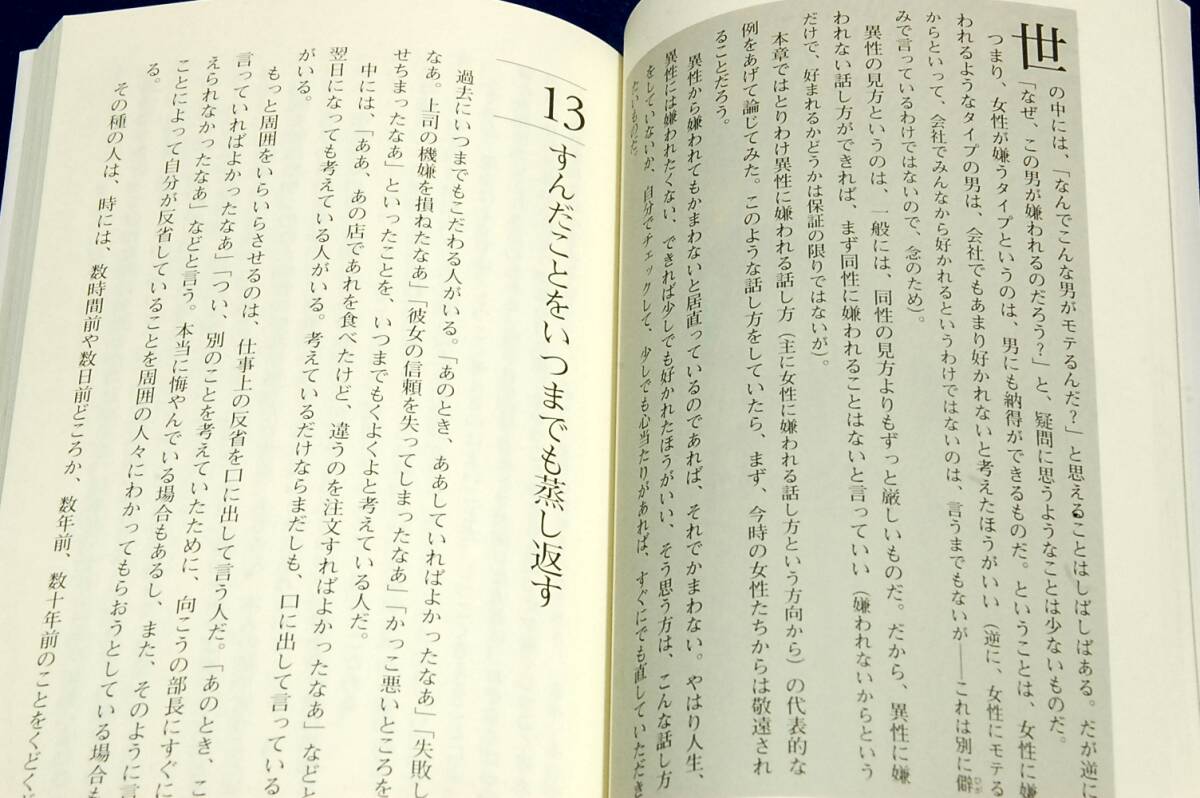 世の中には、「なんでこんな男がモテるんだ?」と思えることはしばしばある。だが逆に
「なぜ、この男が嫌われるのだろう?」と、疑問に思うようなことは少ないものだ。
つまり、女性が嫌うタイプというのは、男にも納得ができるものだ。ということは、女性に嫌
われるようなタイプの男は、会社でもあまり好かれないと考えたほうがいい(逆に、女性にモテる
からといって、会社でみんなから好かれるというわけではないのは、言うまでもないが――これは別に僻
みで言っているわけではないので、念のため)。
異性の見方というのは、一般には、同性の見方よりもずっと厳しいものだ。だから、異性に嫌
われない話し方ができれば、まず同性に嫌われることはないと言っていい(嫌われないからという
だけで、好まれるかどうかは保証の限りではないが)。
本章ではとりわけ異性に嫌われる話し方(主に女性に嫌われる話し方という方向から)の代表的な
例をあげて論じてみた。このような話し方をしていたら、まず、今時の女性たちからは敬遠され
ることだろう。
異性から嫌われてもかまわないと居直っているのであれば、それでかまわない。やはり人生、
異性には嫌われたくない、できれば少しでも好かれたほうがいい、そう思う方は、こんな話し方
をしていないか、自分でチェックして、少しでも心当たりがあれば、すぐにでも直していただき
たいものだ。
13 すんだことをいつまでも蒸し返す
過去にいつまでもこだわる人がいる。「あのとき、ああしていればよかったなあ」「失敗し
なあ。上司の機嫌を損ねたなあ」「彼女の信頼を失ってしまったなあ」「かっこ悪いところを
せちまったなあ」といったことを、いつまでもくよくよと考えている人だ。
中には、「ああ、あの店であれを食べたけど、違うのを注文すればよかったなあ」などと
翌日になっても考えている人がいる。考えているだけならまだしも、口に出して言っている
がいる。
もっと周囲をいらいらさせるのは、仕事上の反省を口に出して言う人だ。「あのとき、こ
言っていればよかったなあ」「つい、別のことを考えていたために、向こうの部長にすぐに
えられなかったなあ」などと言う。本当に悔やんでいる場合もあるし、また、そのように言
ことによって自分が反省していることを周囲の人々にわかってもらおうとしている場合も
る。
その種の人は、時には、数時間前や数日前どころか、数年前、数十年前のことをくどく